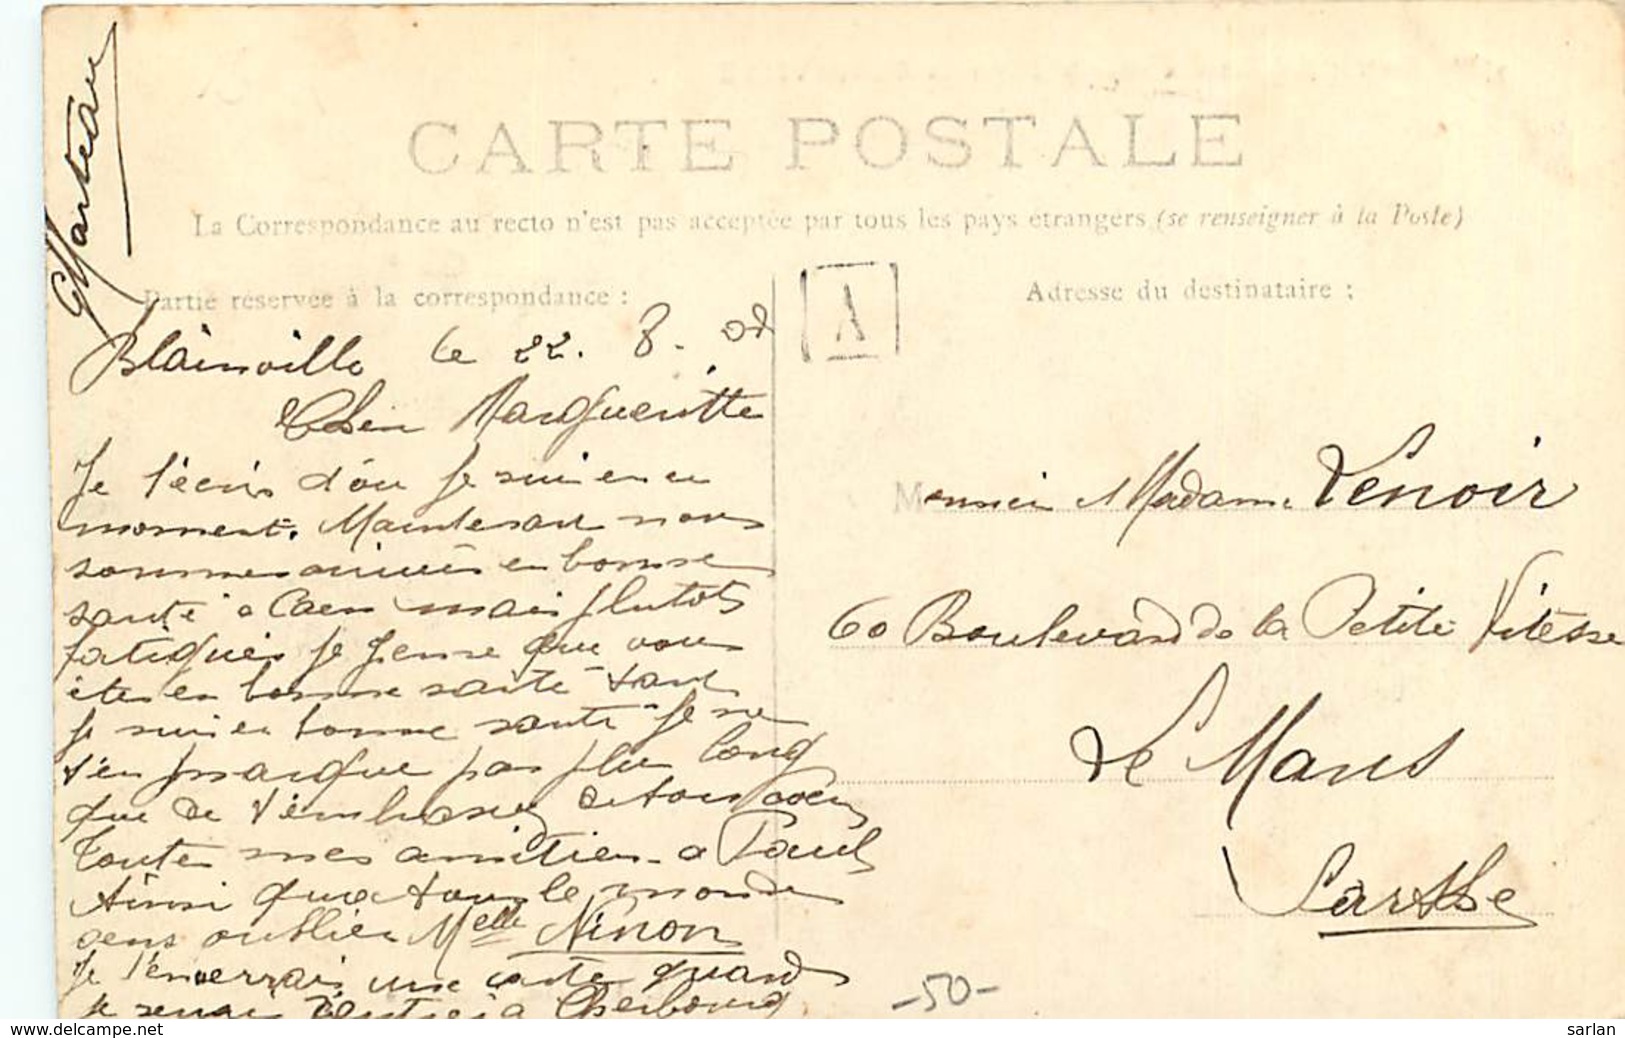 Marteau
CARTE POSTALE
La Correspondance au recto n'est pas acceptée par tous les pays étrangers (se renseigner à la Poste)
Partie réservée à la correspondance :
Adresse du destinataire :
Blainville le 22. 8. 08
Chèr Margueritte
Je t'écris d'óu je suis en ce
moment. Maintenant nous
sommes arrivés en bonne
santé a Caen mais plutot
fatigués je pense que vous
ètes en bonne santé tant
je suis en bonne santé je ne
t'en marque pas plus long
que de t'embrasser de tout coeur
Toutes mes amitiés a Paul
Ainsi que tous le monde
sens oublier Melle Ninon
Je t'enverrais une carte quand
je serais rentrer a Cherbourg
Monsieur Madame Lenoir
60 Boulevard de la Petite Vitesse
Le Mans
Sarthe
-50-
delcampe.net
sarlan